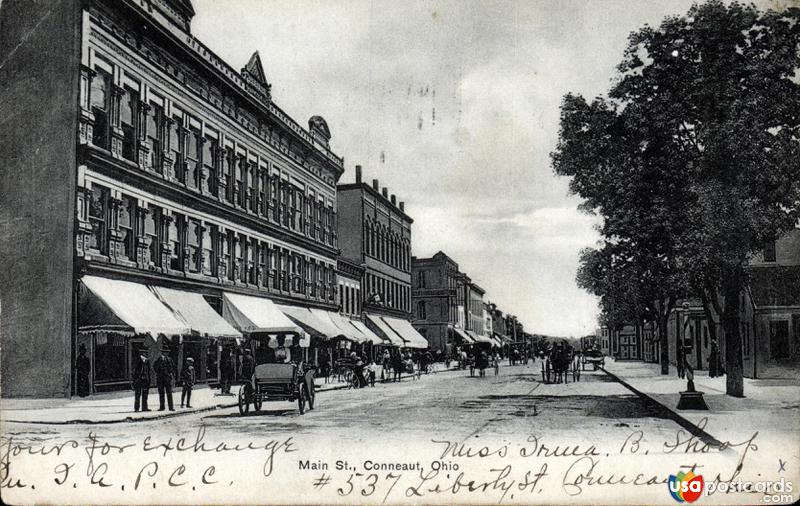 Yours for Exchange
Miss Irma. B. Shoop
Main St., Conneaut, Ohio
In. I. A. P. C. C.
# 537 Liberty St. Conneaut Ohio.
usapostcards
.com